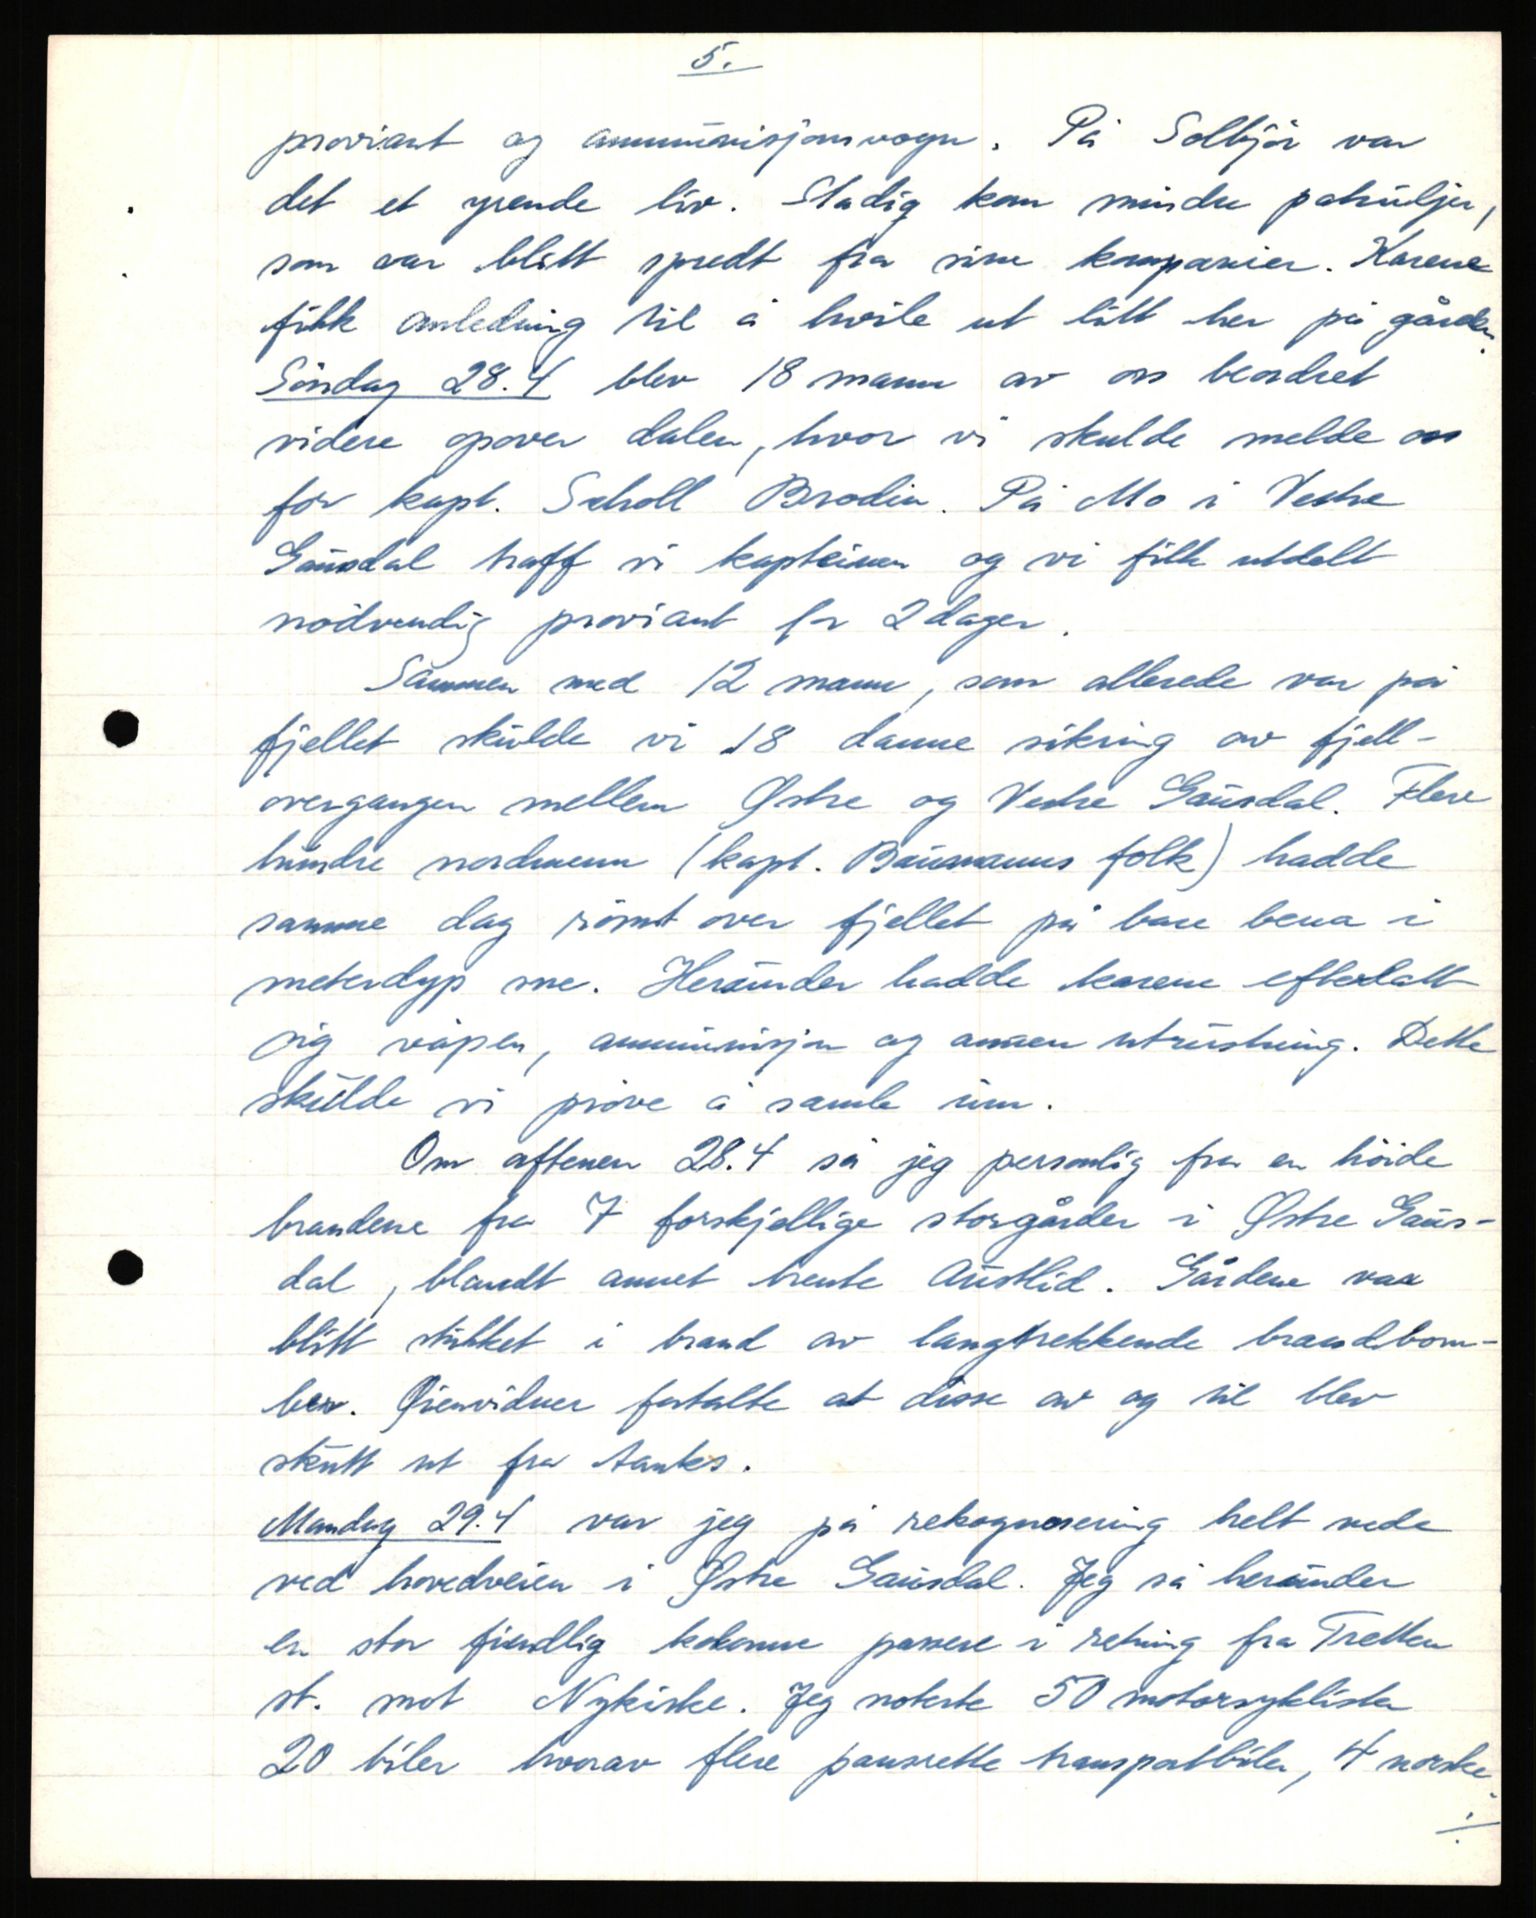 5.
proviant og ammunisjonsvogn. På Solbjør var
det et yrende liv. Stadig kom mindre patruljer,
som var blitt spredt fra sine kompanier. Karene
fikk anledning til å hvile ut litt her på gården.
Söndag 28.4 blev 18 mann av oss beordret
videre opover dalen, hvor vi skulde melde oss
for kapt. Scholl Brodin. På Mo i Vestre
Gausdal traff vi kapteinen og vi fikk utdelt
nödvendig proviant for 2 dager.
Sammen med 12 mann, som allerede var på
fjellet skulde vi 18 danne sikring av fjell-
overgangen mellem Østre og Vestre Gausdal. Flere
hundre nordmenn (kapt. Baumanns folk) hadde
samme dag römt over fjellet på bare bena i
meterdyp sne. Herunder hadde karene efterlatt
sig våpen, ammunisjon og annen utrustning. Dette
skulde vi pröve å samle inn.
Om aftenen 28.4 så jeg personlig fra en höide
brandene fra 7 forskjellige storgårder i Østre Gaus-
dal, blandt annet brente Austlid. Gårdene var
blitt stukket i brand av langtrekkende brandbom-
ber. Øienvidner fortalte at disse av og til blev
skutt ut fra tanks.
Mandag 29.4 var jeg på rekognosering helt nede
ved hovedveien i Østre Gausdal. Jeg så herunder
en stor fiendlig kolonne passere i retning fra Tretten
st. mot Nykirke. Jeg noterte 50 motorsyklister
20 biler hvorav flere pansrette transportbiler, 4 norske
./.